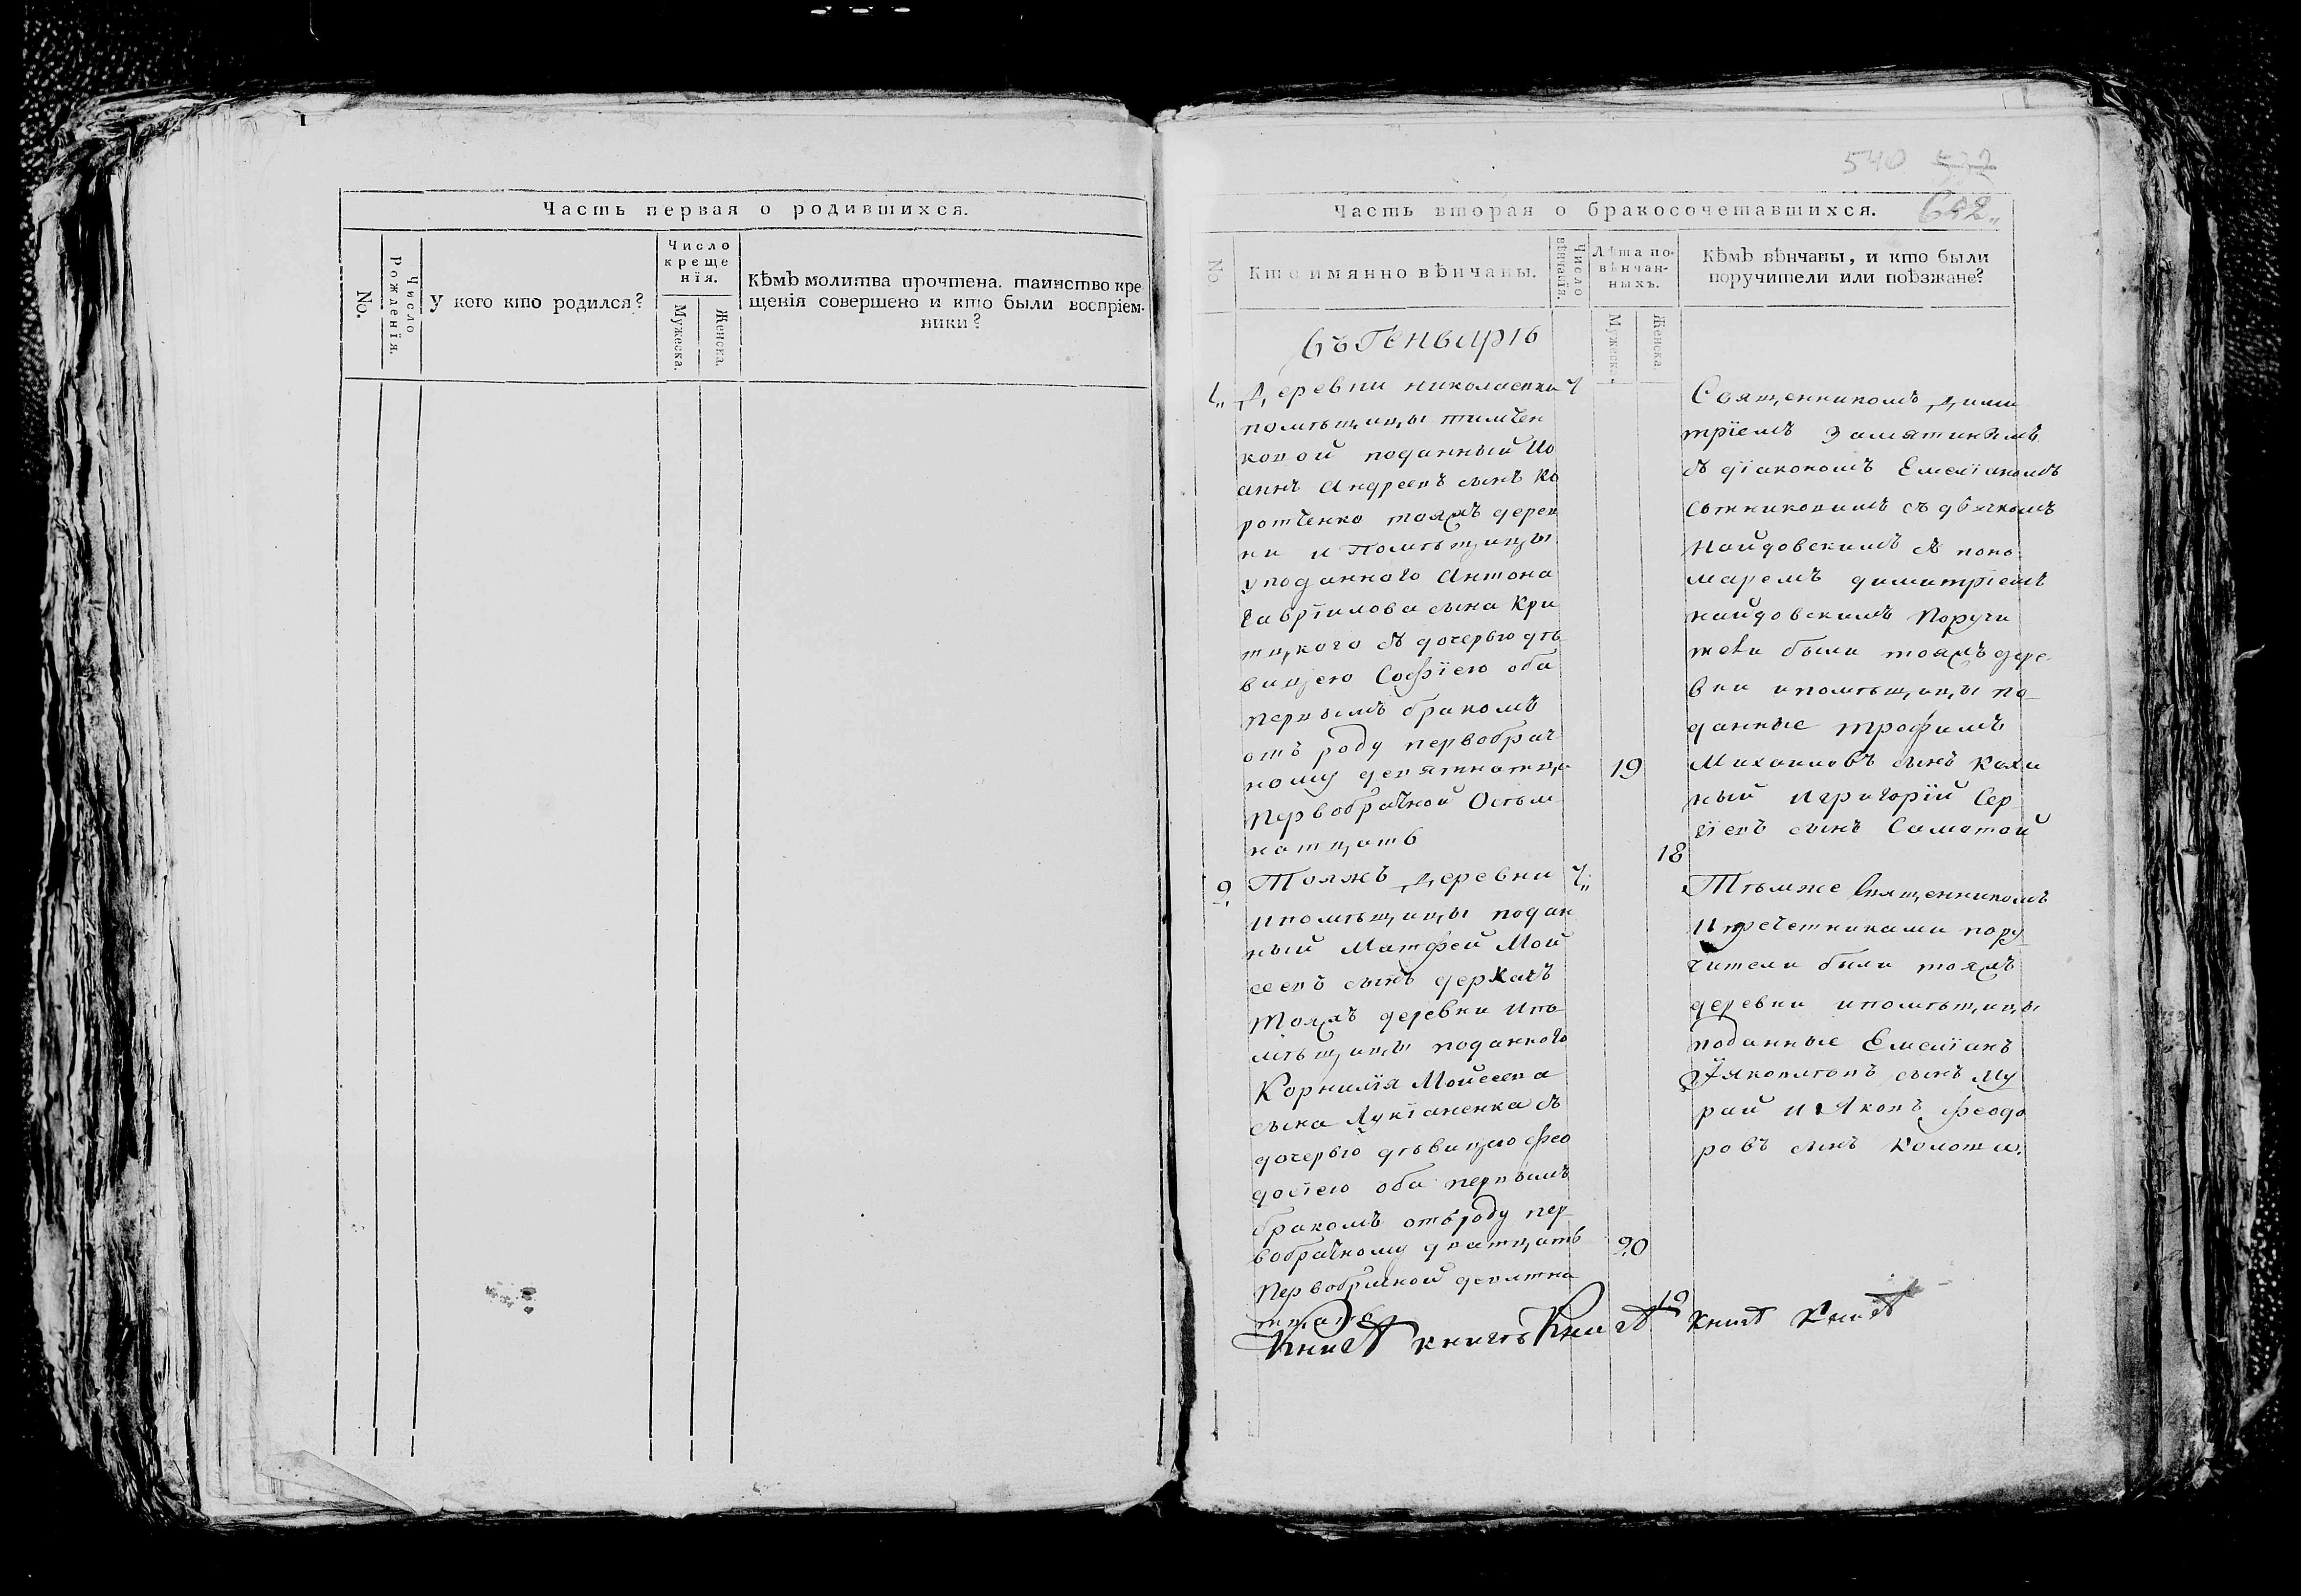 Часть первая о родившихся.
No.
Число Рожденїя.
У кого кто родился?
Число
креще
нїя.
Мужеска.
Женска.
Кѣмъ молитва прочтена. таинство кре
щенїя совершено и кто были воспрїем-
ники?
540 532
Часть вторая о бракосочетавшихся.
No
Кто имянно вѣнчаны.
Число вѣнчанїя.
Лѣта по-
вѣнчан-
ныхъ.
Мужеска.
Женска.
Кѣмъ вѣнчаны, и кто были
поручители или поѣзжане?
въ Генварѣ
1
Деревни николаевки
помѣщицы
ковой поданный Ио
аннъ Андреевъ сынъ Ко
ротченко тояжъ дерев
ни и помѣщицы
поданного Антона
Гаврїилова сына Кри
тцкого съ дочерью дѣ
вицею Софїею оба
первымъ бракомъ
отъ роду первобрач
ному девятнатца
первобрачной Осѣм
натцать
19
18
Священникомъ Дими
трїемъ Замятинымъ
съ дїакономъ Емелїаномъ
Сотниковимъ съ дьячкомъ
Найдовскимъ съ поно
маремъ димитрїемъ
найдовскимъ Поручи
тели были тояжъ дере
вни и помѣщицы по
данные трофимъ
Михаиловъ сынъ
ный и григорїй Сер
гїевъ сынъ
2
Тояжъ Деревни
и помѣщицы подан
ный Матфей Мои
сеевъ сынъ деркачъ
тояжъ деревни и по
мѣщицы поданного
Корнилїя Мойсеева
сына Лукїаненка съ
дочерью дѣвицею Фео
досїею оба первымъ
бракомъ отъ роду пер
вобрачному дватцать
Первобрачной девятна
тцать
20
19
Тѣмже Священникомъ
и причетниками пору
чители были тояжъ
деревни и помѣщицы
поданные Емелїанъ
сынъ Му
рай и Яковъ Феодо
ровъ сынъ